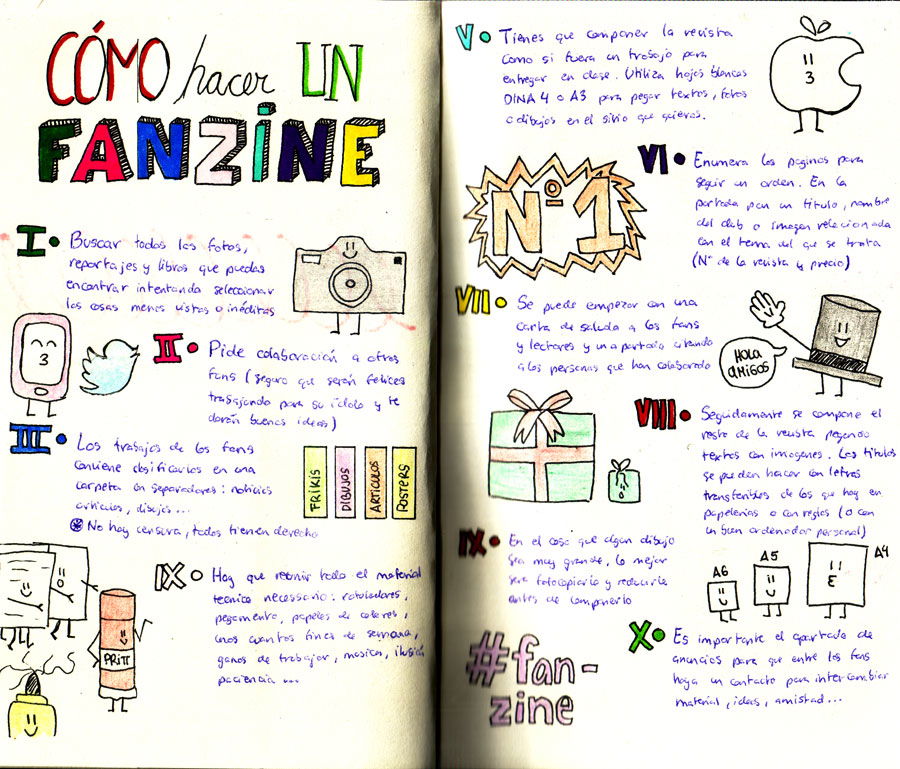 CÓMO hacer UN
FANZINE
I. Buscar todas las fotos,
reportajes y libros que puedas
encontrar intentando seleccionar
las cosas menos vistas o inéditas
II. Pide colaboración a otros
fans (seguro que serán felices
trabajando para su ídolo y te
darán buenas ideas)
III. Los trabajos de los fans
conviene dosificarlos en una
carpeta con separadores: noticias
artículos, dibujos...
* No hay censura, todos tienen derecho
FRIKIS
DIBUJOS
ARTICULOS
POSTERS
IX. Hay que reunir todo el material
tecnico necesario: rotuladores,
pegamento, papeles de colores,
unos cuantos fines de semana,
ganas de trabajar, musica, ilusión
paciencia...
PRiTT
V. Tienes que componer la revista
como si fuera un trabajo para
entregar en clase. Utiliza hojas blancas
DINA 4 o A3 para pegar textos, fotos
o dibujos en el sitio que quieras.
VI. Enumera las paginas para
seguir un orden. En la
portada pon un titulo, nombre
del club o imagen relacionada
con el tema del que se trata
(Nº de la revista y precio)
Nº1
VII. Se puede empezar con una
carta de saludo a los fans
y lectores y una portada citando
a las personas que han colaborado
HOLA
AMIGOS
VIII. Seguidamente se compone el
resto de la revista pegando
textos con imagenes. Los titulos
se pueden hacer con letras
transferibles de las que hay en
papelerias o con reglas (o con
un buen ordenador personal)
IX. En el caso que algun dibujo
sea muy grande, lo mejor
sera fotocopiarlo y reducirlo
antes de componerlo
A6
A5
A4
X. Es importante el apartado de
anuncios para que entre los fans
haya un contacto para intercambiar
material, ideas, amistad...
#fan-
zine